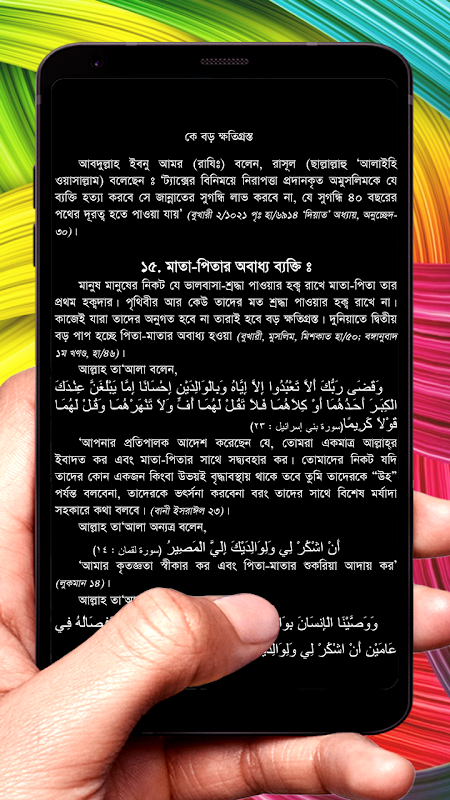 কে বড় ক্ষতিগ্রস্ত
আবদুল্লাহ ইবনু আমর (রাযিঃ) বলেন, রাসূল (ছাল্লাল্লাহু ‘আলাইহি
ওয়াসাল্লাম) বলেছেন ঃ ‘ট্যাক্সের বিনিময়ে নিরাপত্তা প্রদানকৃত অমুসলিমকে যে
ব্যক্তি হত্যা করবে সে জান্নাতের সুগন্ধি লাভ করবে না, যে সুগন্ধি ৪০ বছরের
পথের দূরত্ব হতে পাওয়া যায়’ (বুখারী ২/১০২১ পৃঃ হা/৬৯১৪ ‘দিয়াত’ অধ্যায়, অনুচ্ছেদ-
৩০)।
১৫. মাতা-পিতার অবাধ্য ব্যক্তি ঃ
মানুষ মানুষের নিকট যে ভালবাসা-শ্রদ্ধা পাওয়ার হক্ব রাখে মাতা-পিতা তার
প্রথম হক্বদার। পৃথিবীর আর কেউ তাদের মত শ্রদ্ধা পাওয়ার হক্ব রাখে না।
কাজেই যারা তাদের অনুগত হবে না তারাই হবে বড় ক্ষতিগ্রস্ত। দুনিয়াতে দ্বিতীয়
বড় পাপ হচ্ছে পিতা-মাতার অবাধ্য হওয়া (বুখারী, মুসলিম, মিশকাত হা/৫০; বঙ্গানুবাদ
১ম খণ্ড, হা/৪৬)।
আল্লাহ তা‘আলা বলেন,
وَقَضَى رَبُّكَ أَلاَّ تَعْبُدُوا إِلاَّ إِيَّاهُ وَبِالْوَالِدَيْنِ إِحْسَانًا إِمَّا يَبْلُغَنَّ عِنْدَكَ
الْكِبَرَ أَحَدُهُمَا أَوْ كِلاَهُمَا فَلاَ تَقُلْ لَهُمَا أُفٍّ وَلاَ تَنْهَرْهُمَا وَقُلْ لَهُمَا
قَوْلاً كَرِيمًا (سورة بنى إسرائيل : ২৩)
‘আপনার প্রতিপালক আদেশ করেছেন যে, তোমরা একমাত্র আল্লাহ্‌র
ইবাদত কর এবং মাতা-পিতার সাথে সদ্ব্যবহার কর। তোমাদের নিকট যদি
তাদের কোন একজন কিংবা উভয়ই বৃদ্ধাবস্থায় থাকে তবে তুমি তাদেরকে “উহ”
পর্যন্ত বলবেনা, তাদেরকে ভর্ৎসনা করবেনা বরং তাদের সাথে বিশেষ মর্যাদা
সহকারে কথা বলবে। (বানী ইসরাঈল ২৩)।
আল্লাহ তা‘আলা অন্যত্র বলেন,
أَنْ اشْكُرْ لِي وَلِوَالِدَيْكَ إِلَيَّ الْمَصِيرُ (سورة لقمان : ١٤)
‘আমার কৃতজ্ঞতা স্বীকার কর এবং পিতা-মাতার শুকরিয়া আদায় কর’
(লুকমান ১৪)।
আল্লাহ তা‘আ
وَوَصَّيْنَا الْإِنسَانَ بِوَا فِصَالُهُ فِي
عَامَيْنِ أَنْ اشْكُرْ لِي وَلِوَالِدَ